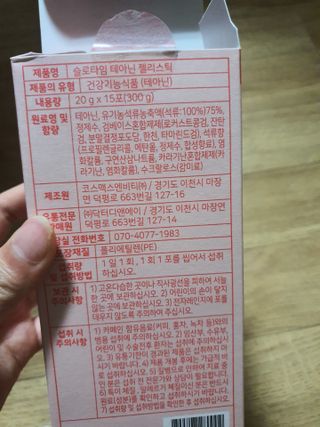 제품명 슬로타임 테아닌 젤리스틱
제품의 유형 건강기능식품 (테아닌)
내용량 20 g x 15포(300 g)
원료명 및 함량 테아닌, 유기농석류농축액(석류:100%)75%,
정제수, 검베이스혼합제제(로커스트콩검, 잔탄
검, 분말결정포도당, 한천, 타마린드검), 석류향
(프로필렌글리콜, 에탄올, 정제수, 합성향료), 염
화칼륨, 구연산삼나트륨, 카라기난혼합제제(카
라기난, 염화칼륨), 수크랄로스(감미료)
제조원 코스맥스엔비티㈜ / 경기도 이천시 마장
면 덕평로 663번길 127-16
유통전문판매원 ㈜닥터디앤에이 / 경기도 이천시 마장면
덕평로 663번길 127-14
상담실 전화번호 070-4077-1983
포장재질 폴리에틸렌(PE)
섭취량 및 섭취방법 1일 1회, 1회 1포를 씹어서 섭취
하십시오.
보관 시 주의사항 1) 고온다습한 곳이나 직사광선을 피하여 서늘
한 곳에 보관하십시오. 2) 어린이의 손이 닿지
않는 곳에 보관하십시오. 3) 전자레인지에 포를
데우지 않도록 주의하여 주십시오.
섭취 시 주의사항 1) 카페인 함유음료(커피, 홍차, 녹차 등)와의
병용 섭취에 주의하십시오. 2) 임산부, 수유부,
어린이 및 수술전후 환자는 섭취에 주의하십시
오. 3) 유통기한이 경과된 제품은 섭취하지 마
시기 바랍니다. 4) 제품 개봉 후에는 가급적 바
로 섭취하십시오. 5) 질병으로 인하여 치료 중
인 분은 섭취 전 전문가와 상담이 필요합니다.
6) 특이체질, 알레르기 체질이신 분은 반드시
원료(성분)를 확인하고 섭취하시기 바랍니다.
7) 섭취량 및 섭취방법을 확인한 후 섭취하십시오.